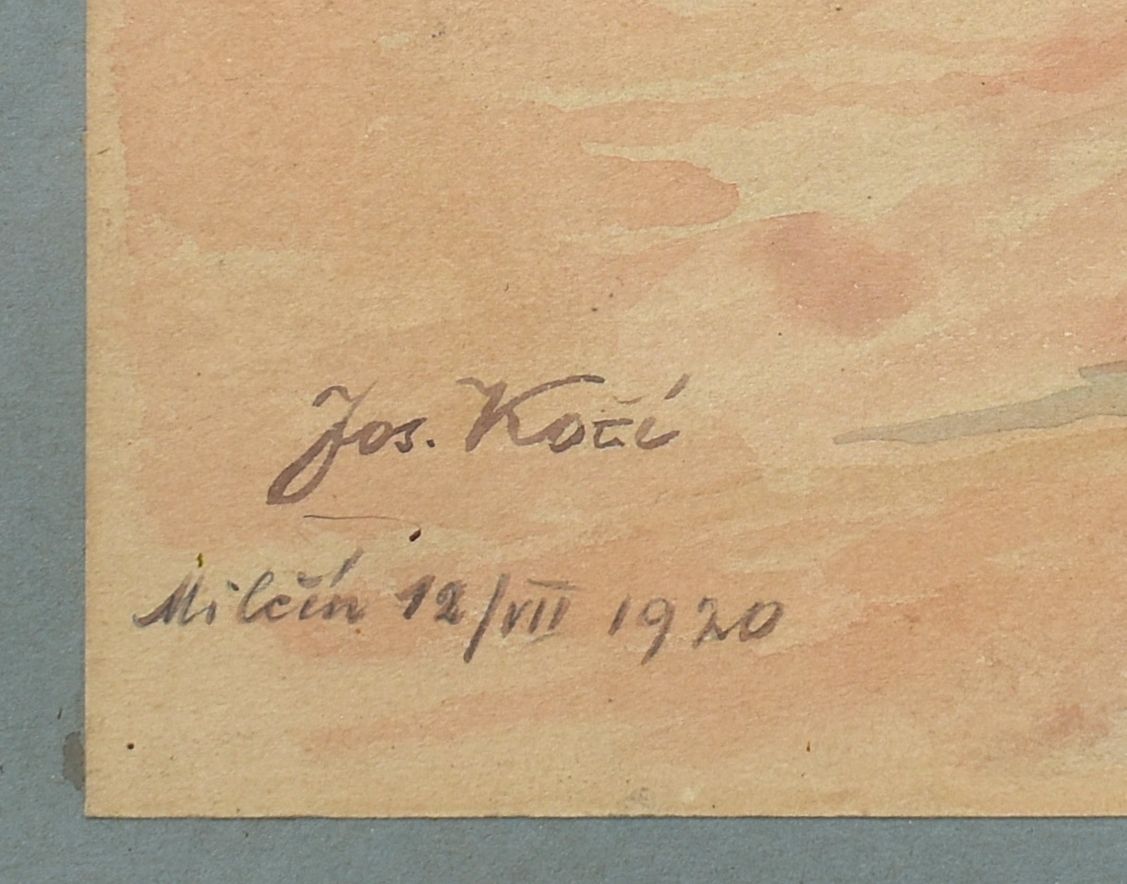 Jos. Kočí
Milčín 12/VII 1920